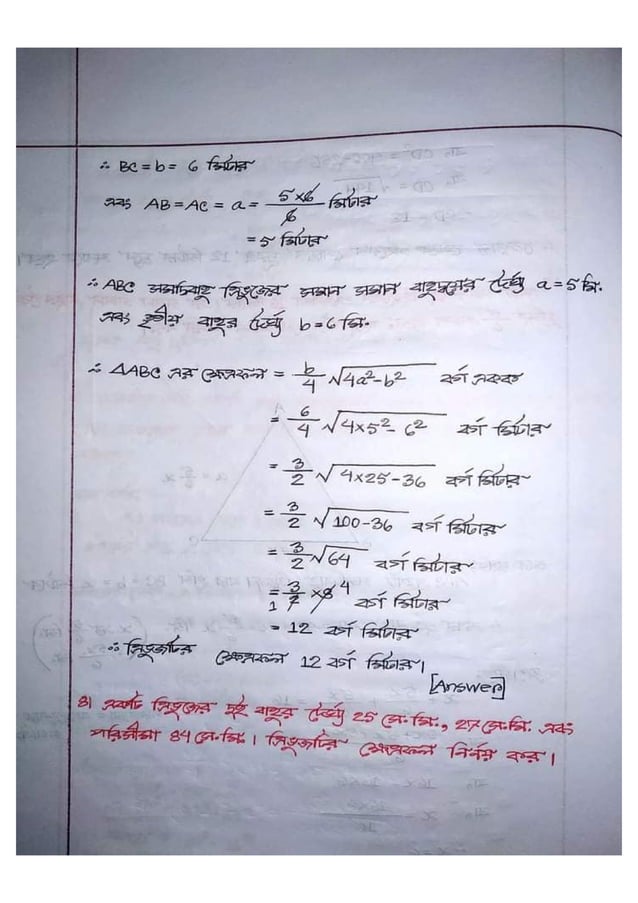 ∴ BC = b = 6 মিটার
এবং AB = AC = a = \frac{5×6}{6} মিটার
= 5 মিটার
∴ ABC সমদ্বিবাহু ত্রিভুজের সমান সমান বাহুদ্বয়ের দৈর্ঘ্য a = 5 মি.
এবং তৃতীয় বাহুর দৈর্ঘ্য b = 6 মি.
∴ ΔABC এর ক্ষেত্রফল = \frac{b}{4} √(4a²-b²) বর্গ একক
= \frac{6}{4} √(4×5²-6²) বর্গ মিটার
= \frac{3}{2} √(4×25-36) বর্গ মিটার
= \frac{3}{2} √(100-36) বর্গ মিটার
= \frac{3}{2} √64 বর্গ মিটার
= \frac{3}{2} × 8 4 বর্গ মিটার
1
= 12 বর্গ মিটার
∴ ত্রিভুজটির ক্ষেত্রফল 12 বর্গ মিটার।
[Answer]
৪। একটি ত্রিভুজের দুই বাহুর দৈর্ঘ্য 25 সে.মি., 27 সে.মি. এবং
পরিসীমা 84 সে.মি.। ত্রিভুজটির ক্ষেত্রফল নির্ণয় কর।